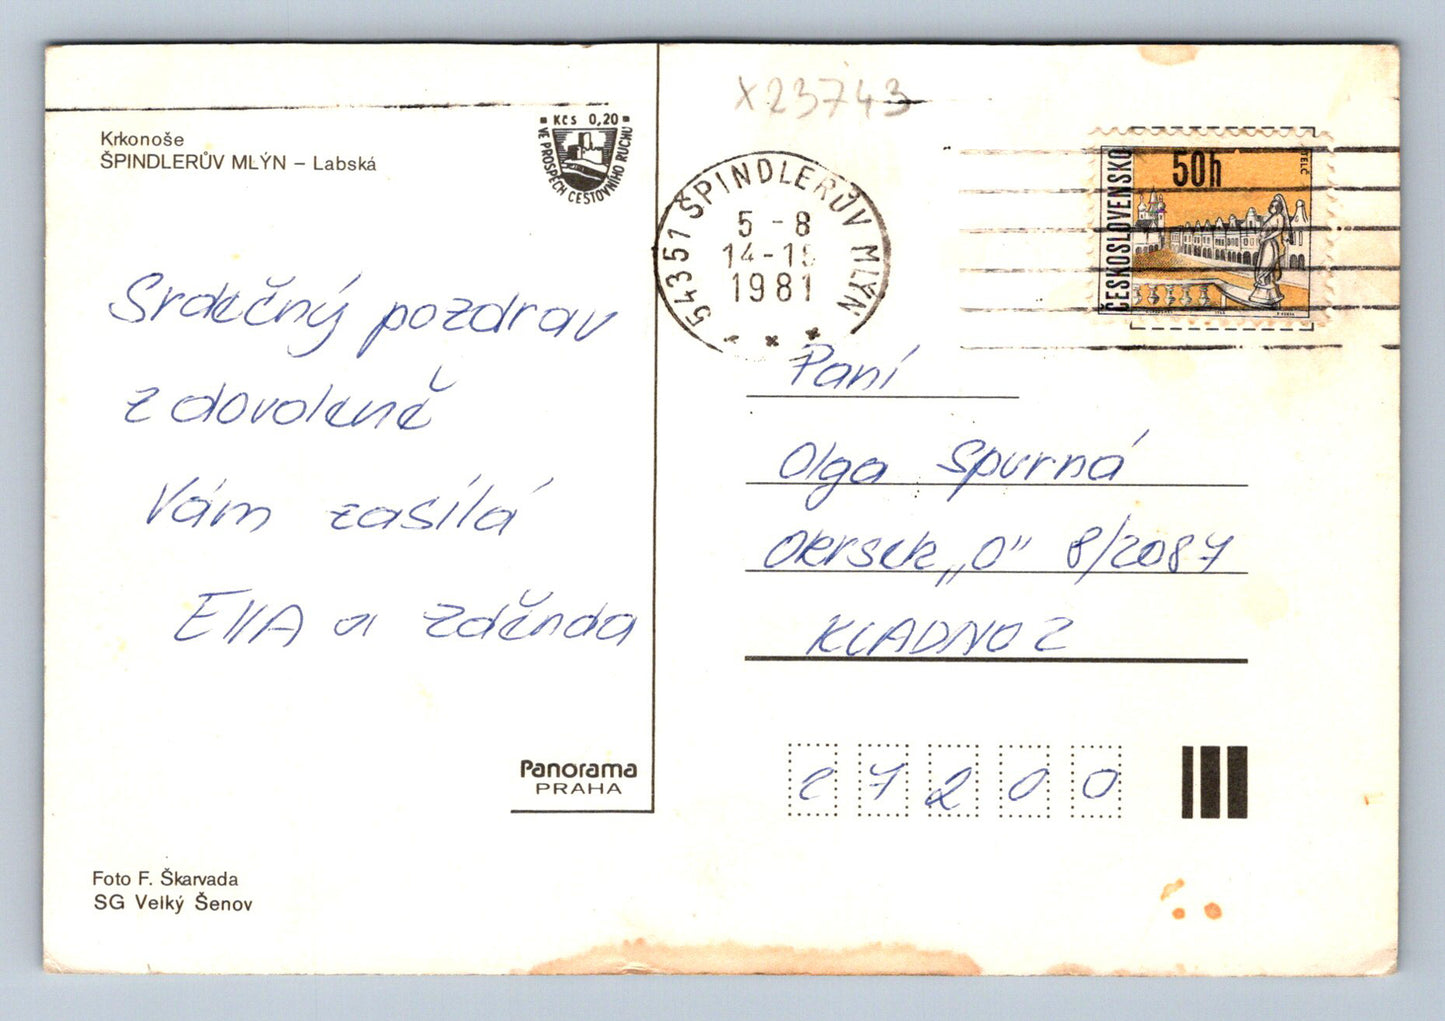 x23743
Krkonoše
ŠPINDLERŮV MLÝN – Labská
Kčs 0,20
VE PROSPĚCH CESTOVNÍHO RUCHU
54351 ŠPINDLERŮV MLÝN
5 - 8
14-15
1981
ČESKOSLOVENSKO
50h
TELČ
Srdečný pozdrav
z dovolené
Vám zasílá
Ella a Zděnda
Paní
Olga Spurná
Okrsek „O" 8/2087
KLADNO 2
27200
Panorama
PRAHA
Foto F. Škarvada
SG Velký Šenov